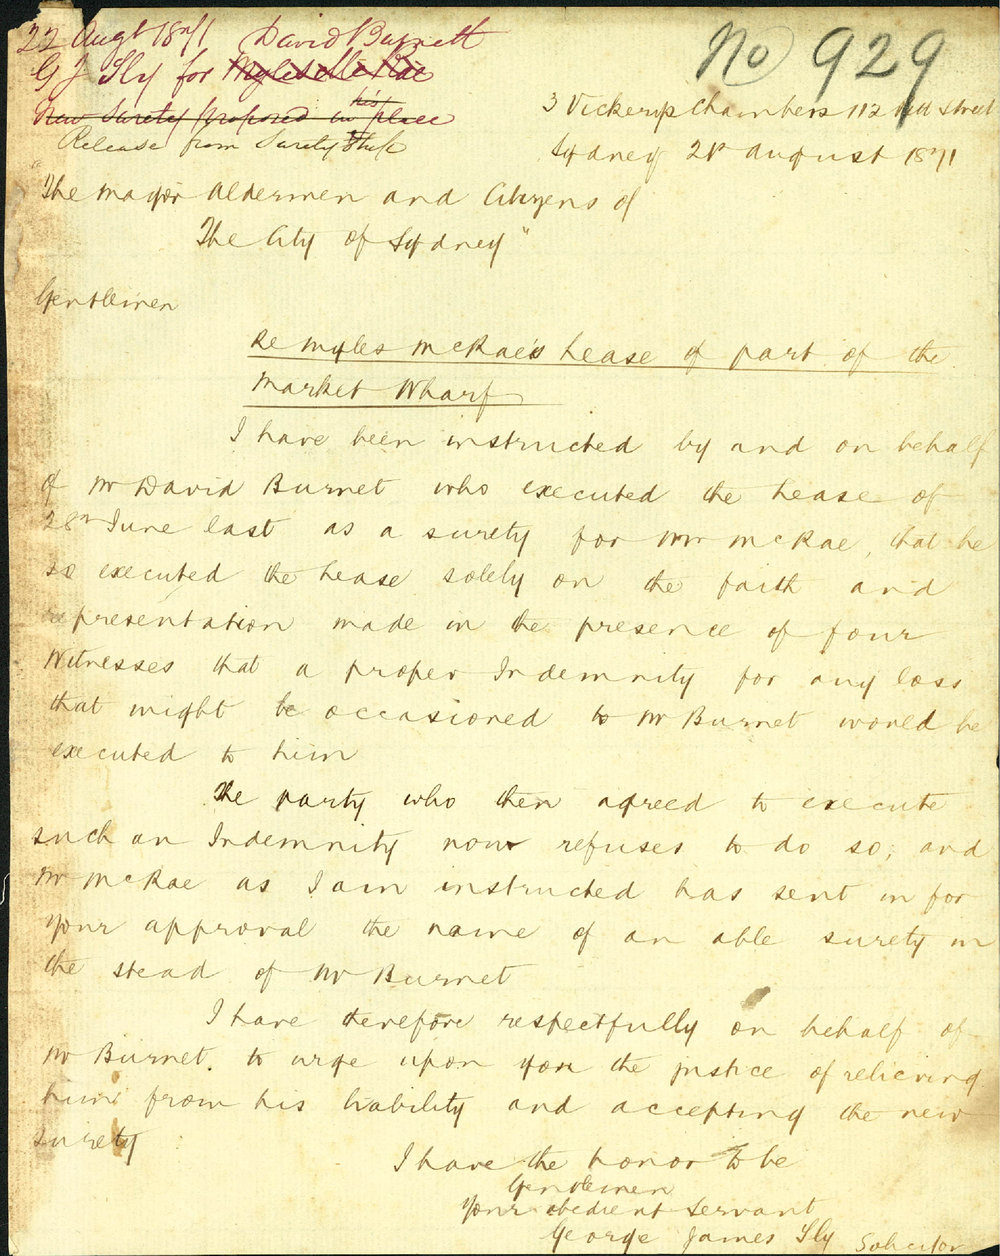 22 Augt 1871 David Burnett
No 929
G J Sly for Myles McRae
New Surety proposed in his place
Release from Suretyship
3 Vickery's Chambers 112 Pitt Street
Sydney 21st August 1871
"The Mayor Aldermen and Citizens of
The City of Sydney"
Gentlemen
Re Myles McRae's Lease of part of the
Market Wharf
I have been instructed by and on behalf
of Mr David Burnet who executed the Lease of
28th June last as a surety for Mr McRae, that he
so executed the Lease solely on the faith and
representation made in the presence of four
Witnesses that a proper Indemnity for any loss
that might be occasioned to Mr Burnet would be
executed to him
The party who then agreed to execute
such an Indemnity now refuses to do so, and
Mr McRae as I am instructed has sent in for
your approval the name of an able surety in
the stead of Mr Burnet
I have therefore respectfully on behalf of
Mr Burnet. to urge upon you the justice of relieving
him from his liability and accepting the new
surety
I have the honor to be
Gentlemen
Your obedient servant
George James Sly Solicitor